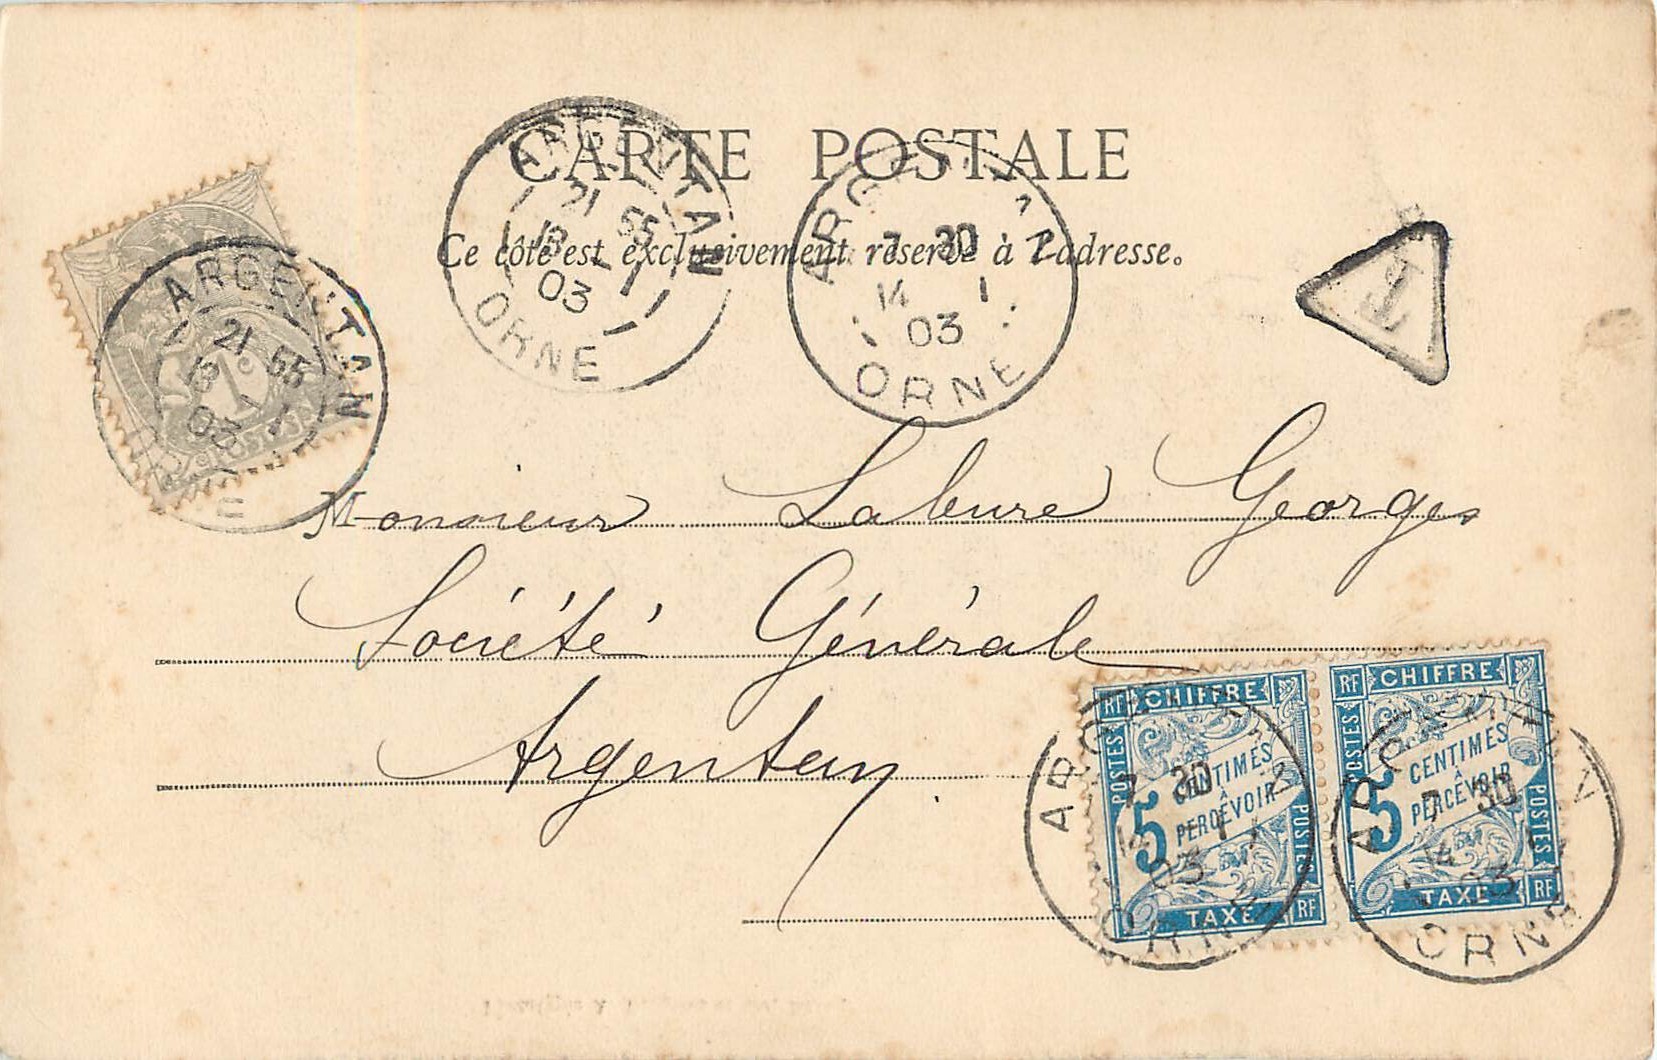 CARTE POSTALE
Ce côté est exclusivement réservé à l'adresse.
ARGENTAN
21 55
13 1
03
ORNE
ARGENTAN
7 30
14 1
03
ORNE
T
ARGENTAN
21 55
13 1
03
ORNE
1c
POSTES
Monsieur Labure Georges
Société Générale
Argentan
RF CHIFFRE
POSTES
5 CENTIMES
À
PERCEVOIR
POSTES
TAXE RF
RF CHIFFRE
POSTES
5 CENTIMES
À
PERCEVOIR
POSTES
TAXE RF
ARGENTAN
7 30
14 1
03
ORNE
ARGENTAN
7 30
14
03
ORNE